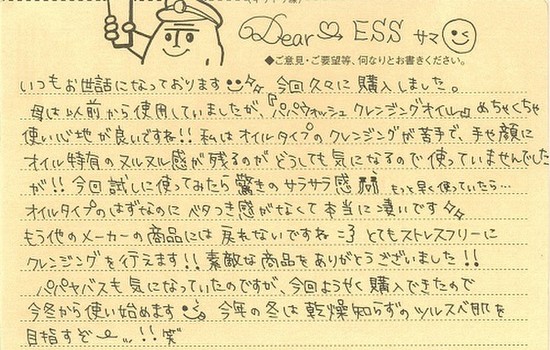 Dear ESS サマ
◆ご意見・ご要望等、何なりとお書きください。
いつもお世話になっております 今回久々に購入しました。
母は以前から使用していましたが、『パパウォッシュ クレンジングオイル』めちゃくちゃ
使い心地が良いですね!! 私はオイルタイプのクレンジングが苦手で、手や顔に
オイル特有のヌルヌル感が残るのがどうしても気になるので使っていませんでした
が!! 今回試しに使ってみたら驚きのサラサラ感 もっと早く使っていたら…
オイルタイプのはずなのにベタつき感がなくて本当に凄いです
もう他のメーカーの商品には戻れないですね =3 とてもストレスフリーに
クレンジングを行えます!! 素敵な商品をありがとうございました!!
パパヤバスも気になっていたのですが、今回ようやく購入できたので
今冬から使い始めます 今年の冬は乾燥知らずのツルスベ肌を
目指すぞ !! 笑